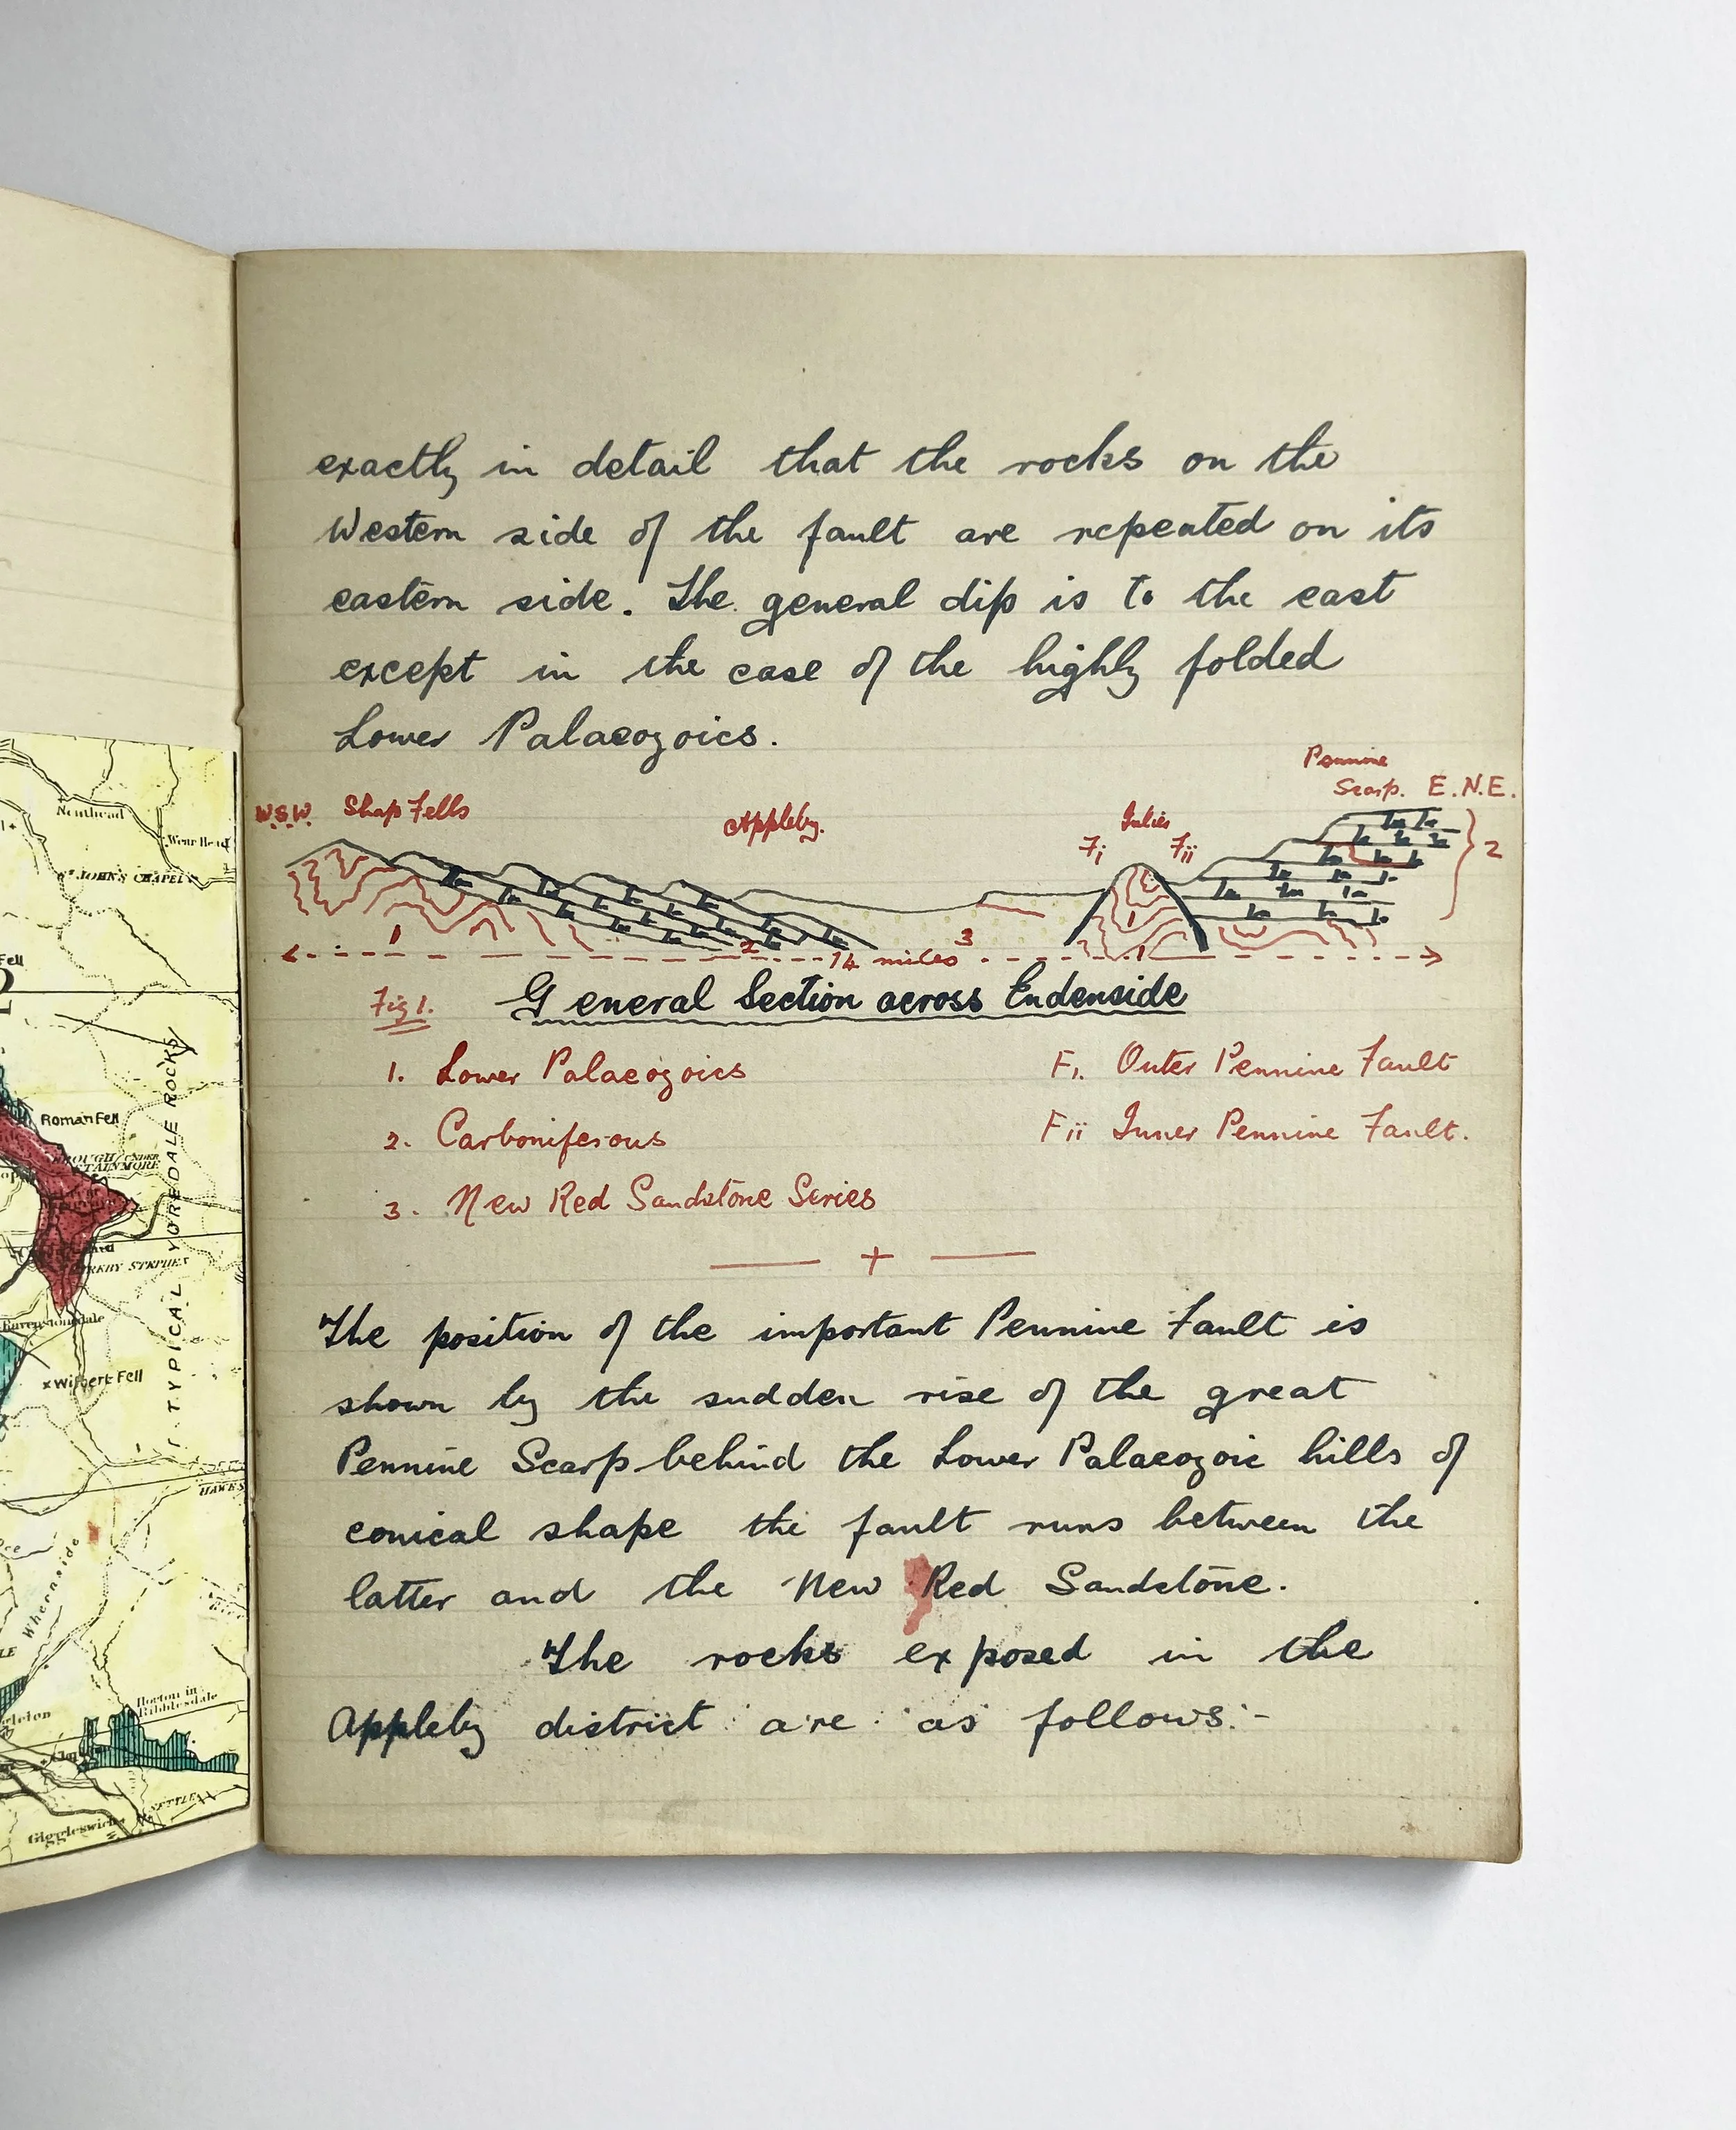 exactly in detail that the rocks on the
Western side of the fault are repeated on its
eastern side. The general dip is to the east
except in the case of the highly folded
Lower Palaeozoics.
Pennine
Scarp. E.N.E.
W.S.W. Shap Fells
Appleby.
Fi Fii
2
1
2
3
1
1
14 miles
Fig 1. General Section across Endenside
1. Lower Palaeozoics
F1. Outer Pennine Fault
2. Carboniferous
Fii Inner Pennine Fault.
3. New Red Sandstone Series
The position of the important Pennine Fault is
shown by the sudden rise of the great
Pennine Scarp behind the Lower Palaeozoic hills of
conical shape the fault runs between the
latter and the New Red Sandstone.
The rocks exposed in the
Appleby district are as follows:-
Nenthead
Wear Head
ST JOHN'S CHAPEL
Fell
Roman Fell
BROUGH UNDER
STAINMORE
KIRKBY STEPHEN
Ravenstonedale
x Wilbert Fell
TYPICAL YOREDALE ROCKS
HAWES
Whernside
Horton in
Ribblesdale
SETTLE
Giggleswick